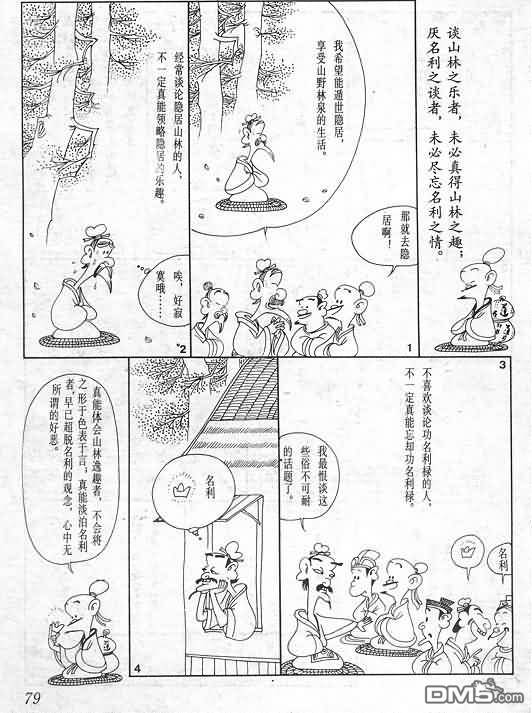 谈山林之乐者，未必真得山林之趣；
厌名利之谈者，未必尽忘名利之情。
我希望能遁世隐居，
享受山野林泉的生活。
那就去隐
居啊！
1
经常谈论隐居山林的人，
不一定真能领略隐居的乐趣。
唉，好寂
寞哦……
2
3
不喜欢谈论功名利禄的人，
不一定真能忘却功名利禄。
名利
我最恨谈这
些俗不可耐
的话题了。
名利
4
真能体会山林逸趣者，不会将
之形于色表于言，真能淡泊名利
者，早已超脱名利的观念，心中无
所谓的好恶。
79
漫画人
DM5.com